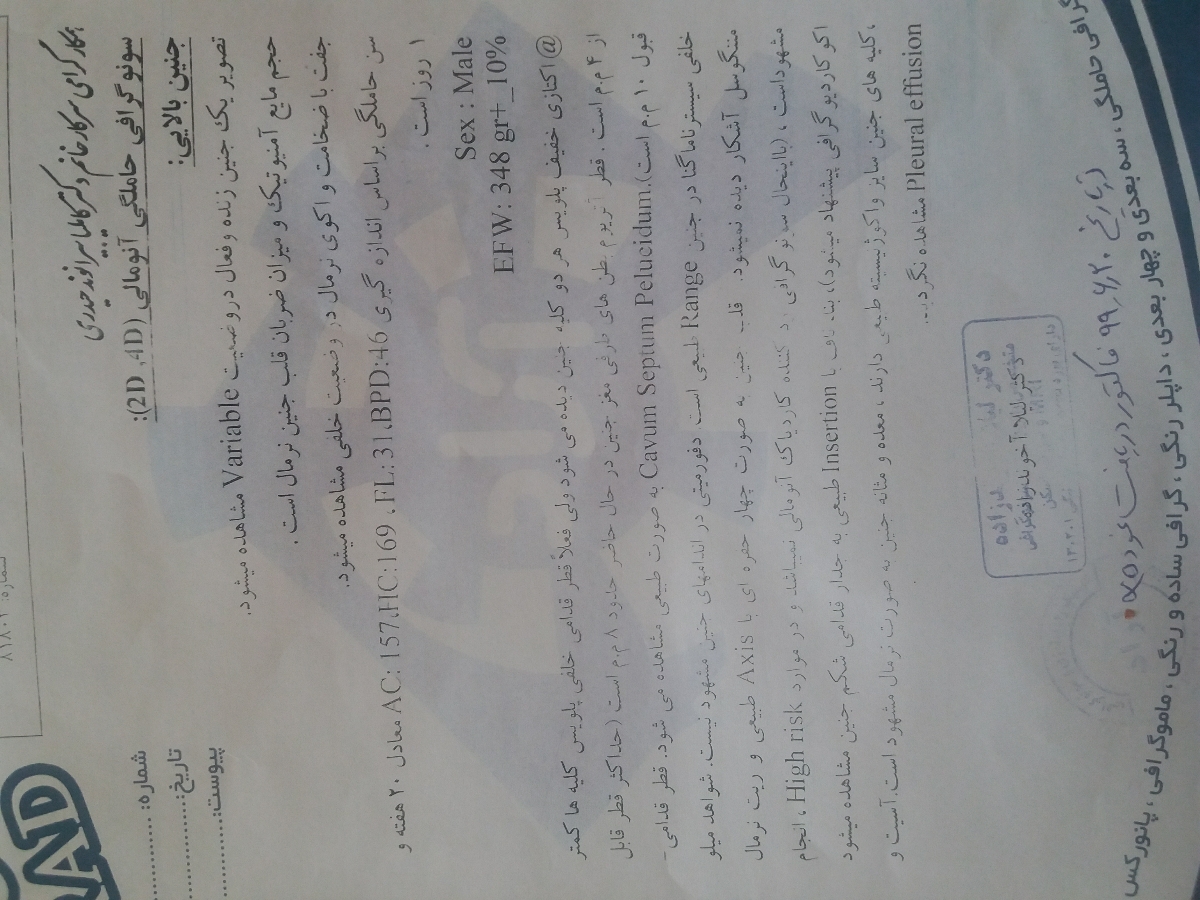 شماره: ۸۱۸۰۲
RAD
شماره:
تاریخ:
پیوست:
همکار گرامی سرکار خانم دکتر
سونوگرافی حاملگی آنومالی (2D ,4D):
جنین بالایی:
تصویر یک جنین زنده و فعال در وضعیت Variable مشاهده میشود.
حجم مایع آمنیوتیک و میزان ضربان قلب جنین نرمال است.
جفت با ضخامت و اکوی نرمال در وضعیت خلفی مشاهده میشود.
سن حاملگی براساس اندازه گیری AC: 157،HC:169 ،FL:31،BPD:46 معادل ۲۰ هفته و
۱ روز است.
Sex : Male
EFW: 348 gr+_10%
@ اکتازی خفیف پلویس هر دو کلیه جنین دیده می شود ولی فعلاً قطر قدامی خلفی پلویس کلیه ها کمتر
از ۴ م.م است. قطر آتریوم بطن های طرفی مغز جنین در حال حاضر حدود ۸ م.م است (حداکثر قطر قابل
قبول ۱۰ م.م است).Cavum Septum Pelucidum به صورت طبیعی مشاهده می شود. قطر قدامی-
خلفی سیسترناماگنا در جنین Range طبیعی است. دفورمیتی در اندامهای جنین مشهود نیست. شواهد میلو
مننگوسل آشکار دیده نمیشود. قلب جنین به صورت چهار حفره ای با Axis طبیعی و ریت نرمال
مشهود است، (بااینحال سونوگرافی رد کننده کاردیاک آنومالی نمیباشد و در موارد High risk ، انجام
اکوکاردیوگرافی پیشنهاد میشود)، بند ناف با Insertion طبیعی به جدار قدامی شکم جنین مشاهده میشود
، کلیه های جنین سایز و اکوژنیسیته طبیعی دارند، معده و مثانه جنین به صورت نرمال مشهود است. آسیت و
Pleural effusion مشاهده نگردید.
دکتر لیلا آخوندزاده
۱۳۰۲۰۱
در تاریخ ۹۹٫۶٫۲۰ فاکتور دریافت نمود
گرافی حاملگی ، سه بعدی و چهار بعدی ، داپلر رنگی ، گرافی ساده و رنگی ، ماموگرافی ، پانورکس